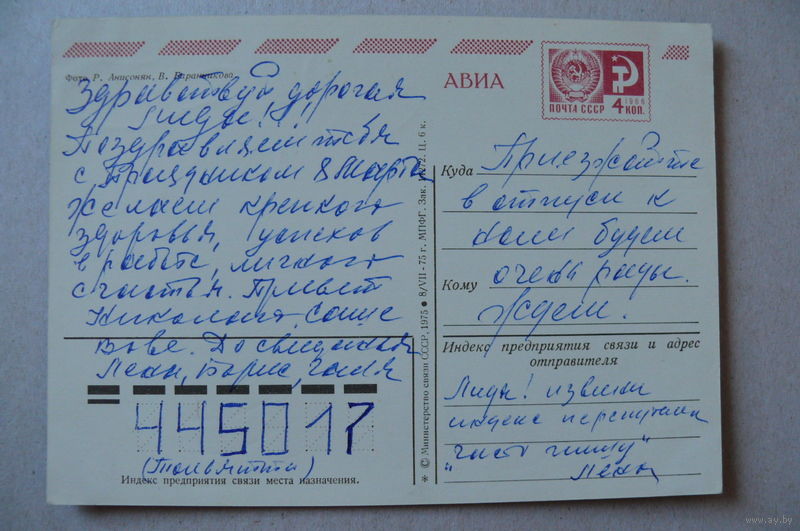 Фото Р. Анисонян, В. Баранникова
АВИА
ПОЧТА СССР
1966
4 КОП.
Здравствуй дорогая
Лида!
Поздравляем тебя
с Праздником 8 Марта
желаем крепкого
здоровья, успехов
в работе, личного
счастья. Привет
Николаю, Саше
Вове. До свидания
Лёня, Борис, Галя
445017
(Тольятти)
Индекс предприятия связи места назначения.
* © Министерство связи СССР, 1975 • 8/VII - 75 г. МПФГ. Зак. Ц. 6 к.
Куда
Приезжайте
в отпуск к
нам будем
Кому
очень рады.
Ждем.
Индекс предприятия связи и адрес
отправителя
Лида! извини
индекс перепутали
"часто пишу"
Лёня
www.ay.by